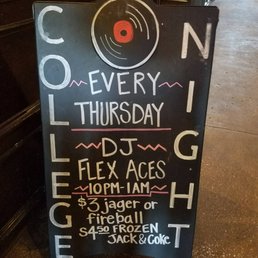 COLLEGE
NIGHT
EVERY
THURSDAY
DJ
FLEX ACES
10PM-1AM
$3 jager or
fireball
$4.50 FROZEN
JACK & COKE